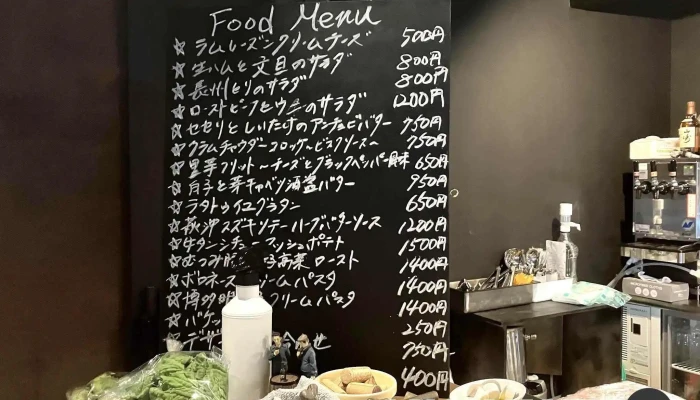 Food Menu
☆ ラムレーズンクリームチーズ 500円
☆ 生ハムと文旦のサラダ 800円
☆ 長州どりのサラダ 800円
☆ ローストビーフとウニのサラダ 1200円
☆ セセリとしいたけのアンチョビバター 750円
☆ クラムチャウダーコロッケ～ビスクソース～ 750円
☆ 里芋フリット～チーズとブラックペッパー風味 650円
☆ 白子と芽キャベツ酒盗バター 950円
☆ ラタトゥイユグラタン 650円
☆ 萩沖スズキソテーハーブバターソース 1200円
☆ 牛タンシチューマッシュポテト 1500円
☆ むつみ豚 高菜ロースト 1400円
☆ ボロネーズ ームパスタ 1400円
☆ 博多明 クリームパスタ 1400円
☆ バケッ 250円
☆ デザ 合せ 750円
400円